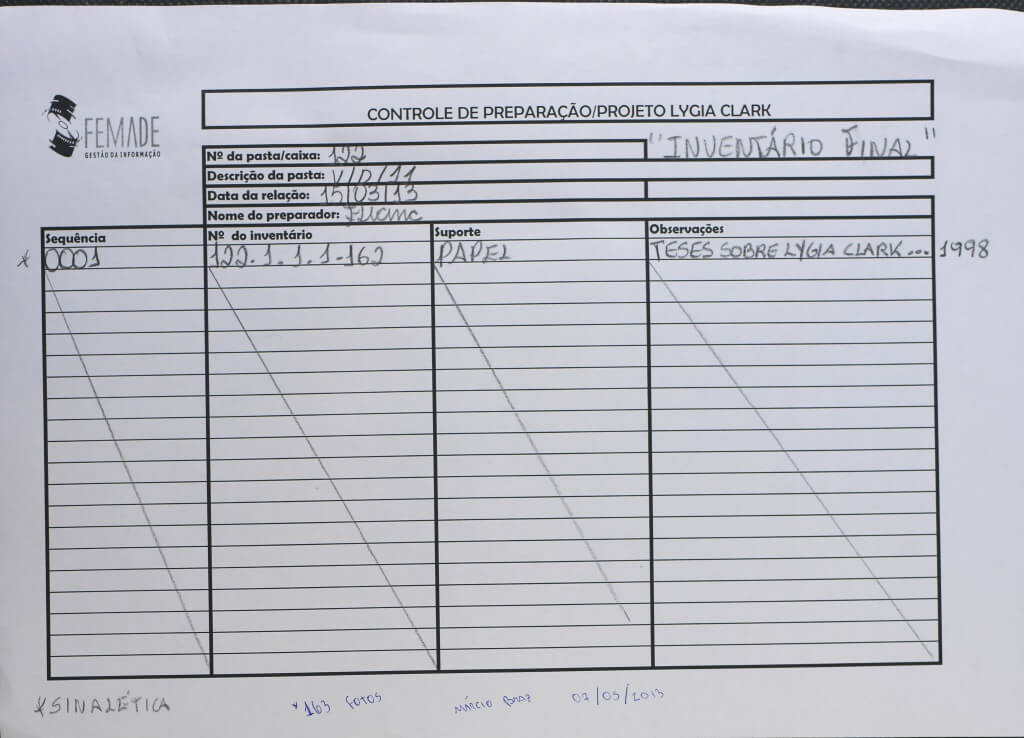 FEMADE
GESTÃO DA INFORMAÇÃO
CONTROLE DE PREPARAÇÃO/PROJETO LYGIA CLARK
"INVENTÁRIO FINAL"
Nº da pasta/caixa: 122
Descrição da pasta: V/D/11
Data da relação: 15/03/13
Nome do preparador:
Sequência Nº do inventário Suporte Observações
* 0001 122.1.1.1-162 PAPEL TESES SOBRE LYGIA CLARK... 1998
*SINALÉTICA *163 FOTOS MÁRCIO BRAZ 02/05/2013